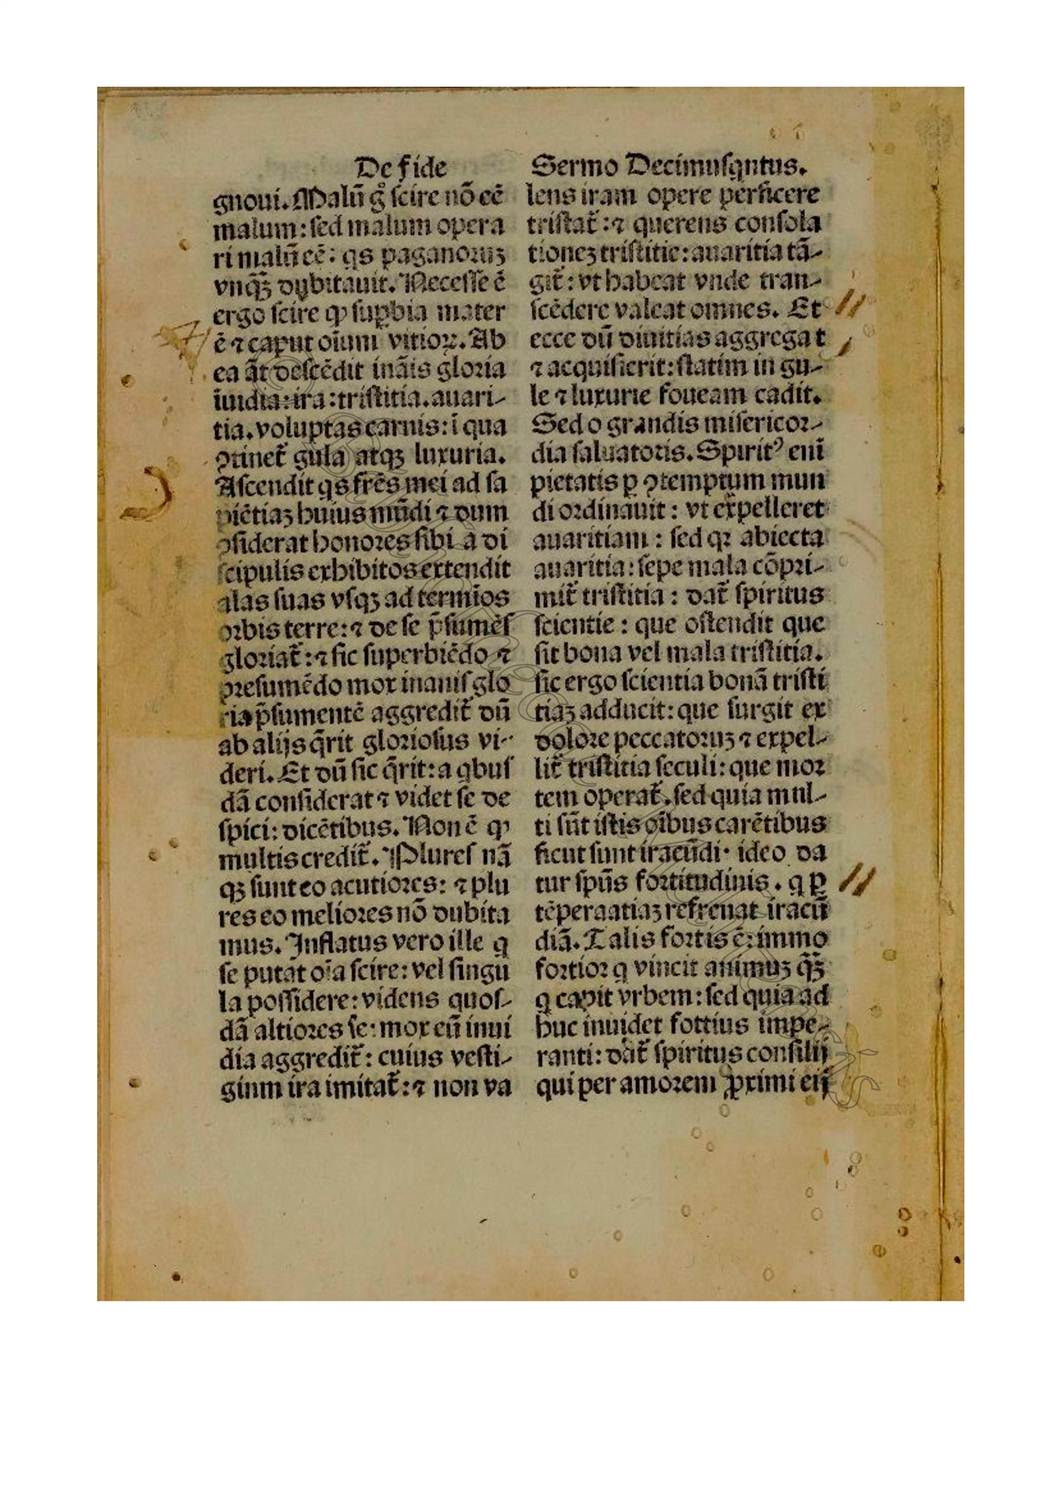 De fide
gnoui. Malū g̊ scire nō eē
malum: sed malum opera
ri malū eē: qs paganoruʒ
vnqʒ̄ dubitauit. Necesse ē
ergo scire ꝙ suꝑbia mater
ē ⁊ caput oīum vitioꝝ. Ab
ea āt descēdit ināis gloria
īuidia: ira: tristitia. auari-
tia. voluptas carnis: ī qua
ꝯtinet̄ gula atqʒ luxuria.
Ascendit qs fr̄es mei ad sa
piētiaʒ huius mūdi ⁊ dum
ꝯsiderat honores sibi a di
scipulis exhibitos extendit
alas suas vsqʒ ad termīos
orbis terre: ⁊ de se p̄sumēs
gloriat̄: ⁊ sic superbiēdo ⁊
presumēdo mox inanis glo
ria p̄sumentē aggredit̄ dū
ab alijs q̄rit gloriosus vi-
deri. Et dū sic q̄rit: a qbus
dā considerat ⁊ videt se de
spici: dicētibus. Non ē ꝙ
multis credit̄. Plures nā
qʒ sunt eo acutiores: ⁊ plu
res eo meliores nō dubita
mus. Inflatus vero ille q
se putat oīa scire: vel singu
la possidere: videns quos-
dā altiores se: mox eū inui
dia aggredit̄: cuius vesti-
gium ira imitat̄: ⁊ non va
Sermo Decimusqntus.
lens iram opere perficere
tristat̄: ⁊ querens consola
tioneʒ tristitie: auaritia tā-
git̄: vt habeat vnde tran-
scēdere valeat omnes. Et
ecce dū diuitias aggregat
⁊ acquisierit: statim in gu-
le ⁊ luxurie foueam cadit.
Sed o grandis misericor-
dia saluatoris. Spiritꝰ enī
pietatis ꝑ ꝯtemptum mun
di ordinauit: vt expelleret
auaritiam: sed qꝛ abiecta
auaritia: sepe mala cōpri-
mit̄ tristitia: dat̄ spiritus
scientie: que ostendit que
sit bona vel mala tristitia.
sic ergo scientia bonā tristi
tiaʒ adducit: que surgit ex
dolore peccatoruʒ ⁊ expel-
lit̄ tristitia seculi: que mor
tem operat̄. sed quia mul-
ti sūt istis oībus carētibus
sicut sunt iracūdi. ideo da
tur spūs fortitudinis. q ꝑ
tēperaatiaʒ refrenat iracū
diā. Talis fortis ē: immo
fortior q vincit animuʒ qʒ̄
q capit vrbem: sed quia ad
huc inuidet fottius impe-
ranti: dat̄ spiritus consilij
qui per amorem ꝓximi eij